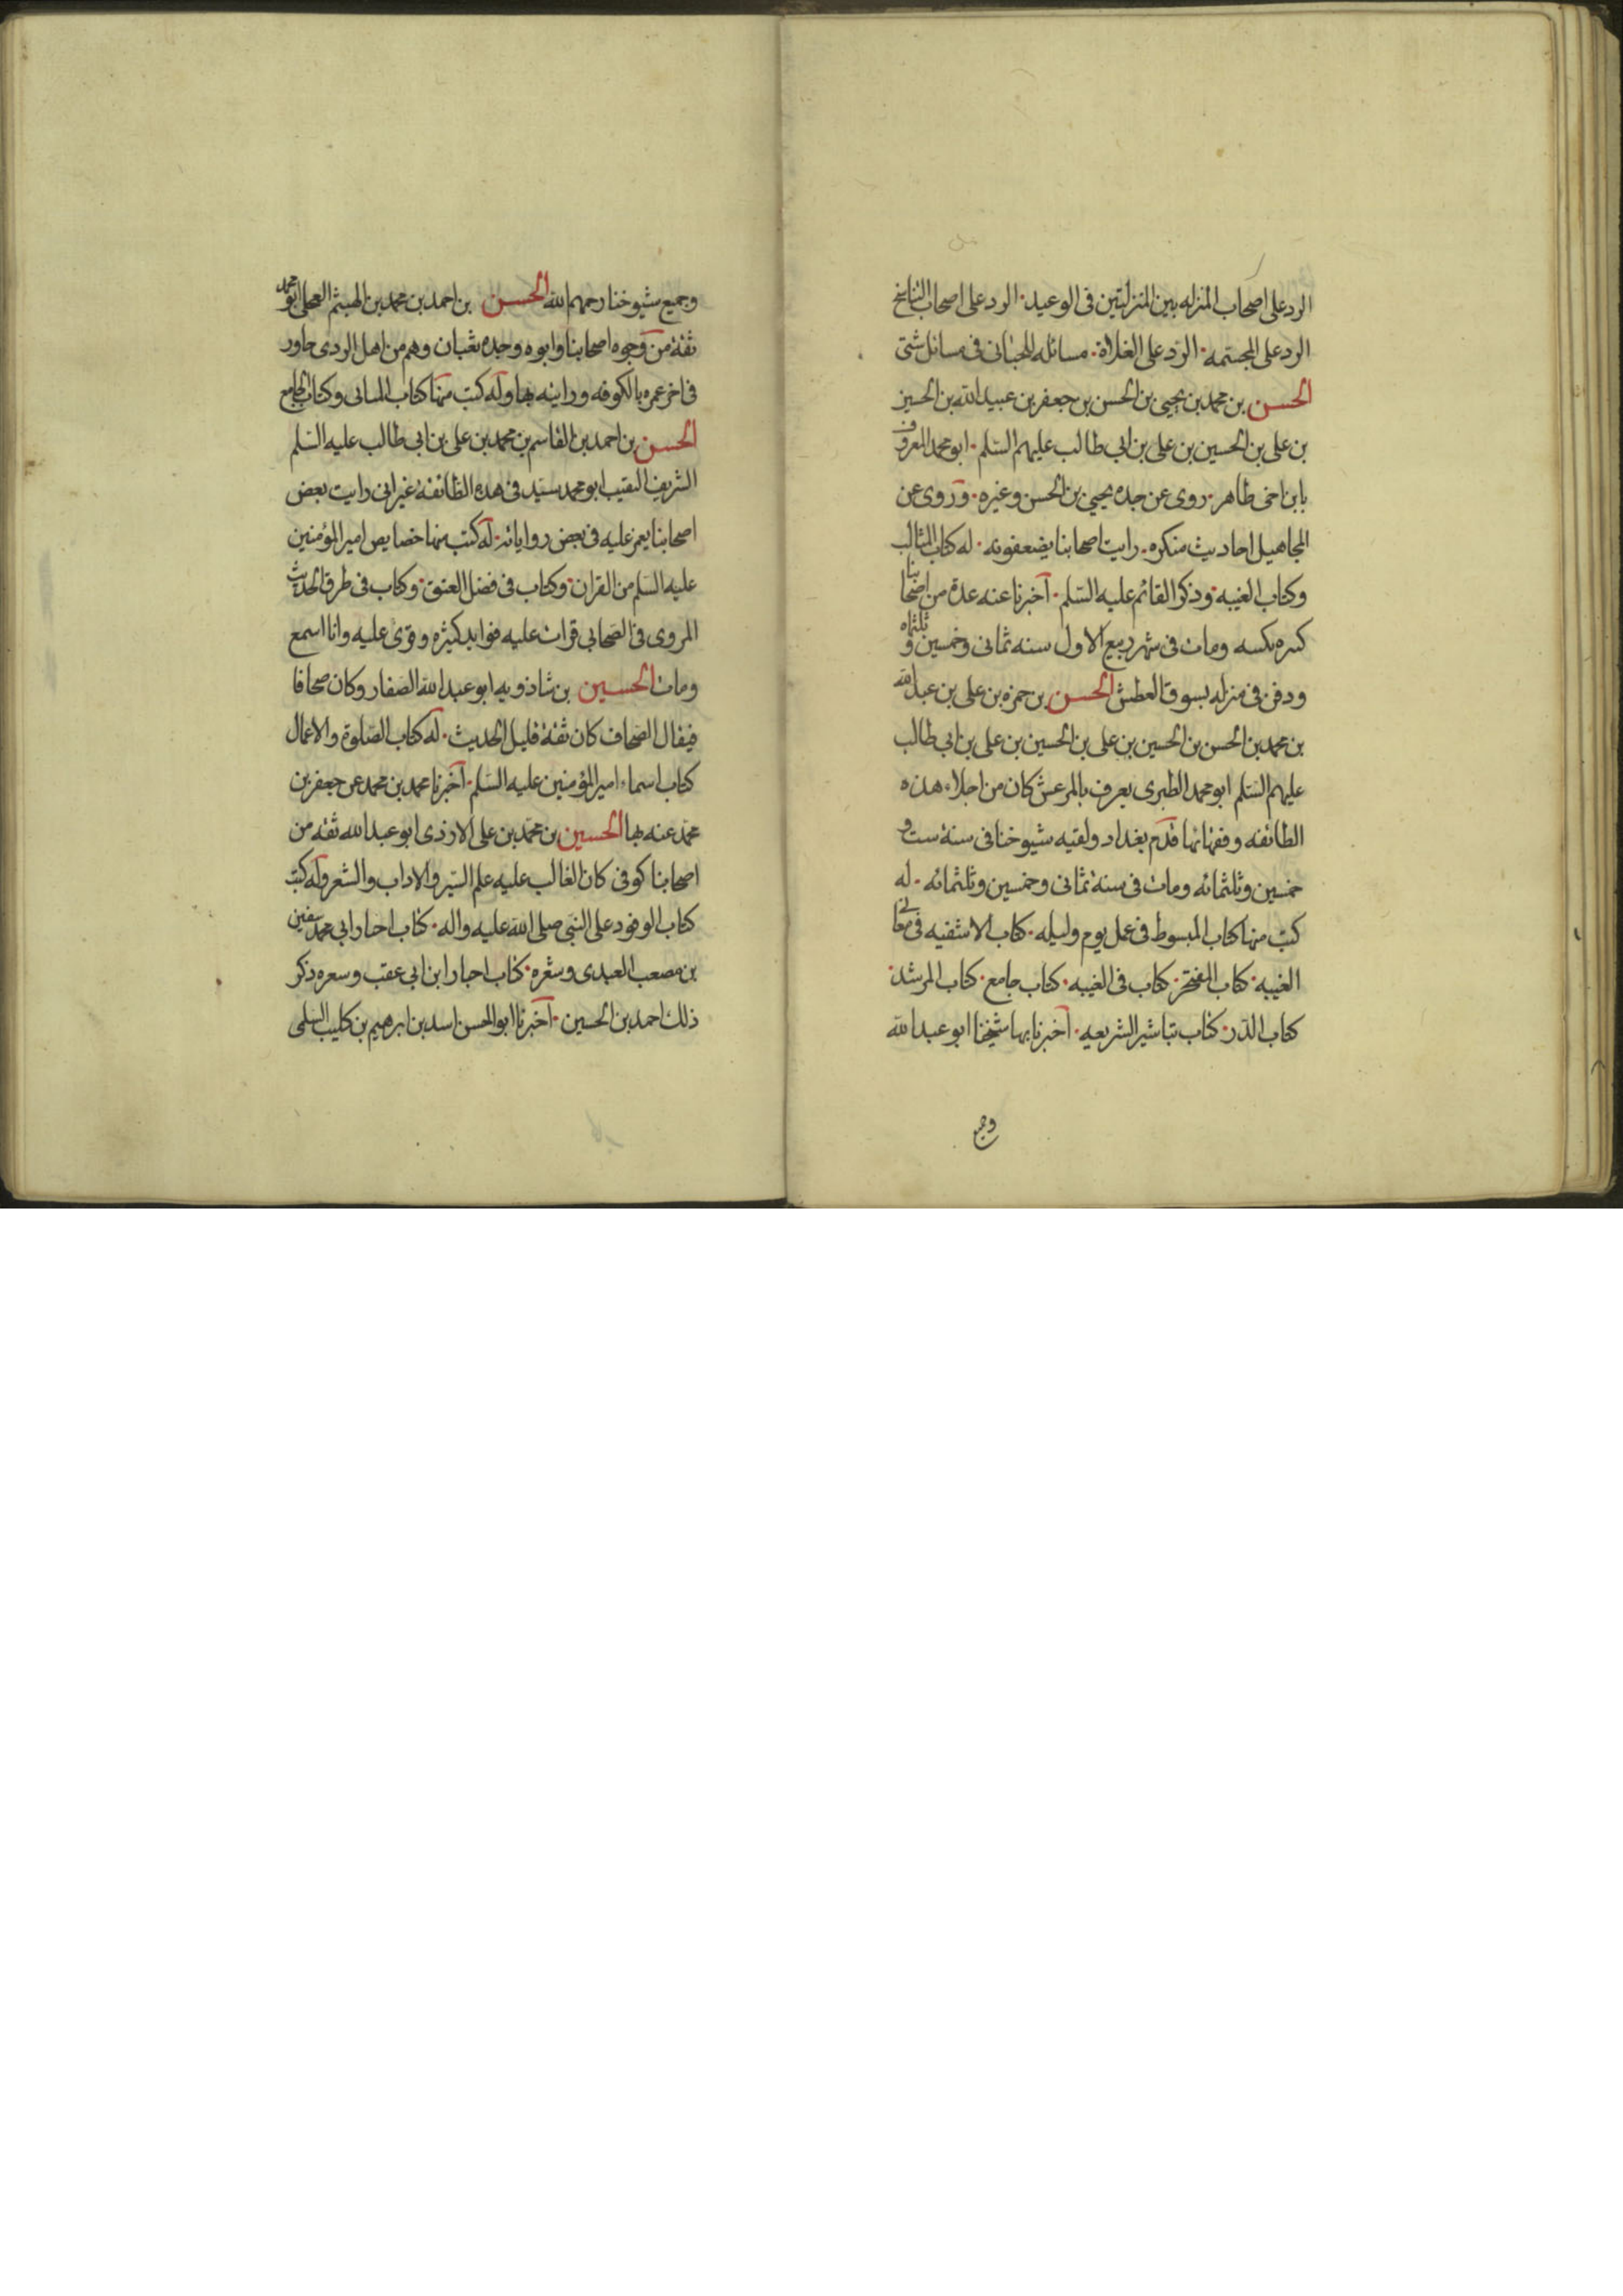 الرد على اصحاب المنزله بين المنزلتين فى الوعيد · الرد على اصحاب التناسخ
الرد على المجسّمه · الرّد على الغلاة · مسائله للجبّائى فى مسائل شتى
الحسن بن محمد بن يحيى بن الحسن بن جعفر بن عبيد الله بن الحسين
بن على بن الحسين بن على بن ابى طالب عليهم السّلم · ابو محمد المعروف
بابن اخى طاهر · روى عن جده يحيى بن الحسن وغيره · وروى عن
المجاهيل احاديث منكره · رايت اصحابنا يضعفونه · له كتاب المثالب
وكتاب الغيبه · وذكر القائم عليه السّلم · اخبرنا عنه عدة من اصحابنا
كثيره بكتبه ومات فى شهر ربيع الاول سنه ثمانى وخمسين و ثلثمائه
ودفن فى منزله بسوق العطش الحسن بن حمزه بن على بن عبد الله
بن محمد بن الحسن بن الحسين بن على بن الحسين بن على بن ابى طالب
عليهم السّلم ابو محمد الطبرى يعرف بالمرعش كان من اجلاء هذه
الطائفه وفقهائها قدم بغداد ولقيه شيوخنا فى سنة ست و
خمسين وثلثمائه ومات فى سنة ثمانى وخمسين وثلثمائه · له
كتب منها كتاب المبسوط فى عمل يوم وليله · كتاب الاشفيه فى معانى
الغيبه · كتاب المفتخر · كتاب فى الغيبه · كتاب جامع · كتاب المرشد ·
كتاب الدّر · كتاب تباشير الشريعه · اخبرنا بها شيخنا ابو عبد الله
وجميع
وجميع شيوخنا رحمهم الله الحسن بن احمد بن محمد بن الهيثم العجلى ابو محمد
ثقة من وجوه اصحابنا وابوه وجده ثقبان وهم من اهل الردى جاور
فى اخر عمره بالكوفه ورايته بها وله كتب منها كتاب المثانى وكتاب الجامع
الحسن بن احمد بن القاسم بن محمد بن على بن ابى طالب عليه السّلم
الشريف النقيب ابو محمد سيّد فى هذه الطّائفة غير انى رايت بعض
اصحابنا يغمز عليه فى بعض رواياته · له كتب منها خصايص امير المؤمنين
عليه السّلم من القران · وكتاب فى فضل العتق · وكتاب فى طرق الحديث
المروى فى الصّحابى قرات عليه فوايد كثيره وقرى عليه وانا اسمع
ومات الحسين بن شاذويه ابو عبد الله الصّفار وكان صحافا
فيقال الصّحاف كان ثقة قليل الحديث · له كتاب الصّلوة والاعمال
كتاب اسماء امير المؤمنين عليه السّلم · اخبرنا محمد بن محمد عن جعفر بن
محمّد عنه بها الحسين بن محمّد بن على الازدى ابو عبد الله ثقه من
اصحابنا كوفى كان الغالب عليه علم السّير والاداب والشعر وله كتب
كتاب الوفود على النّبى صلى الله عليه واله · كتاب اخبار ابى محمد سفين
بن مصعب العبدى وشعره · كتاب اخبار ابن ابى عقب وسعره ذكر
ذلك احمد بن الحسين · اخبرنا ابو الحسن اسد بن ابرهيم بن كليب السّلمى